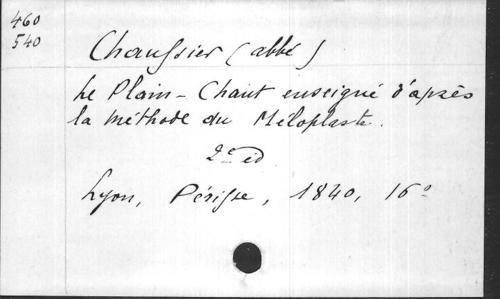 460
540
Chaussier (abbé)
Le Plain-Chant enseigné d'après
la méthode du Méloplaste.
2e éd
Lyon, Périsse, 1840, 16°